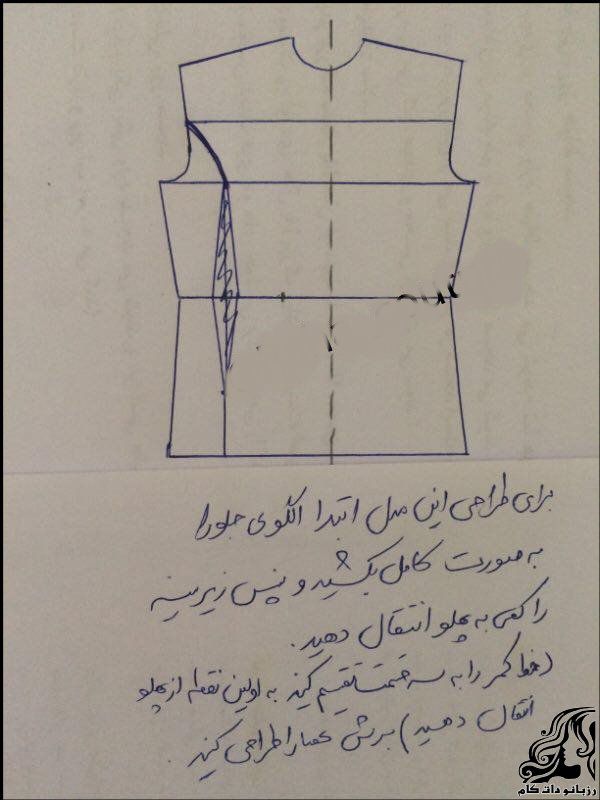 برای طراحی این مدل ابتدا الگوی جلو را
به صورت کامل بکشید و پنس زیر سینه
را کمی به پهلو انتقال دهید.
(خط کمر را به سه قسمت تقسیم کنید به اولین نقطه از پهلو
انتقال دهید) برش عصا را طراحی کنید.
رزبانو دات کام